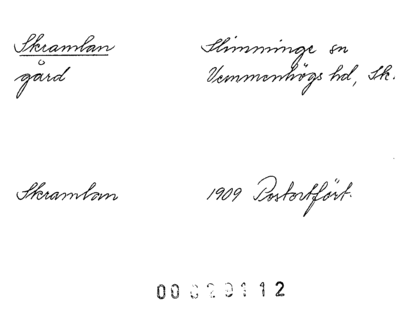 Skramlan
gård
Slimminge sn
Vemmenhögs hd, Sk.
Skramlan
1909 Postortfört.